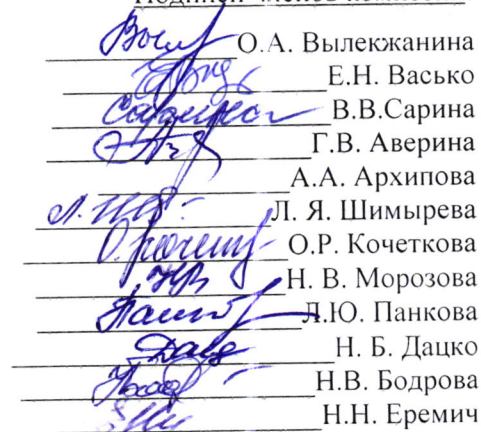 Подписи членов комиссии
О.А. Вылекжанина
Е.Н. Васько
В.В.Сарина
Г.В. Аверина
А.А. Архипова
Л. Я. Шимырева
О.Р. Кочеткова
Н. В. Морозова
Л.Ю. Панкова
Н. Б. Дацко
Н.В. Бодрова
Н.Н. Еремич